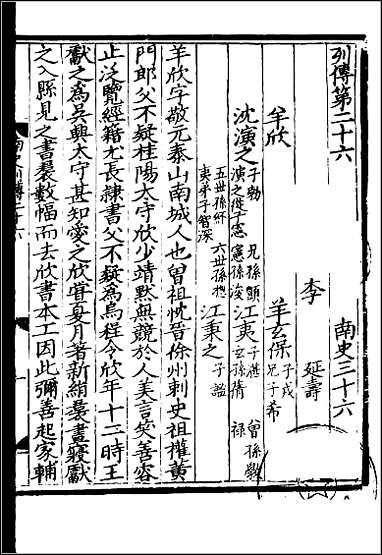 列傳第二十六　南史三十六
李　延壽
羊欣　羊玄保 子戎 兄子希
沈演之 子勃 兄孫顗 演之從子憲 憲孫浚 五世孫
江夷 子湛 曾孫斅 玄孫蒨 祿 五世孫紑 六世孫摠 夷弟子智深
江秉之 子謐
羊欣字敬元泰山南城人也曾祖忱晉徐州刺史祖權黃
門郎父不疑桂陽太守欣少靖黙無競於人美言笑善容
止泛覽經籍尤長隷書父不疑為烏程令欣年十二時王
獻之為吳興太守甚知愛之欣甞夏月著新絹裠晝寢獻
之入縣見之書裠數幅而去欣書本工因此彌善起家輔
南史列傳二十六